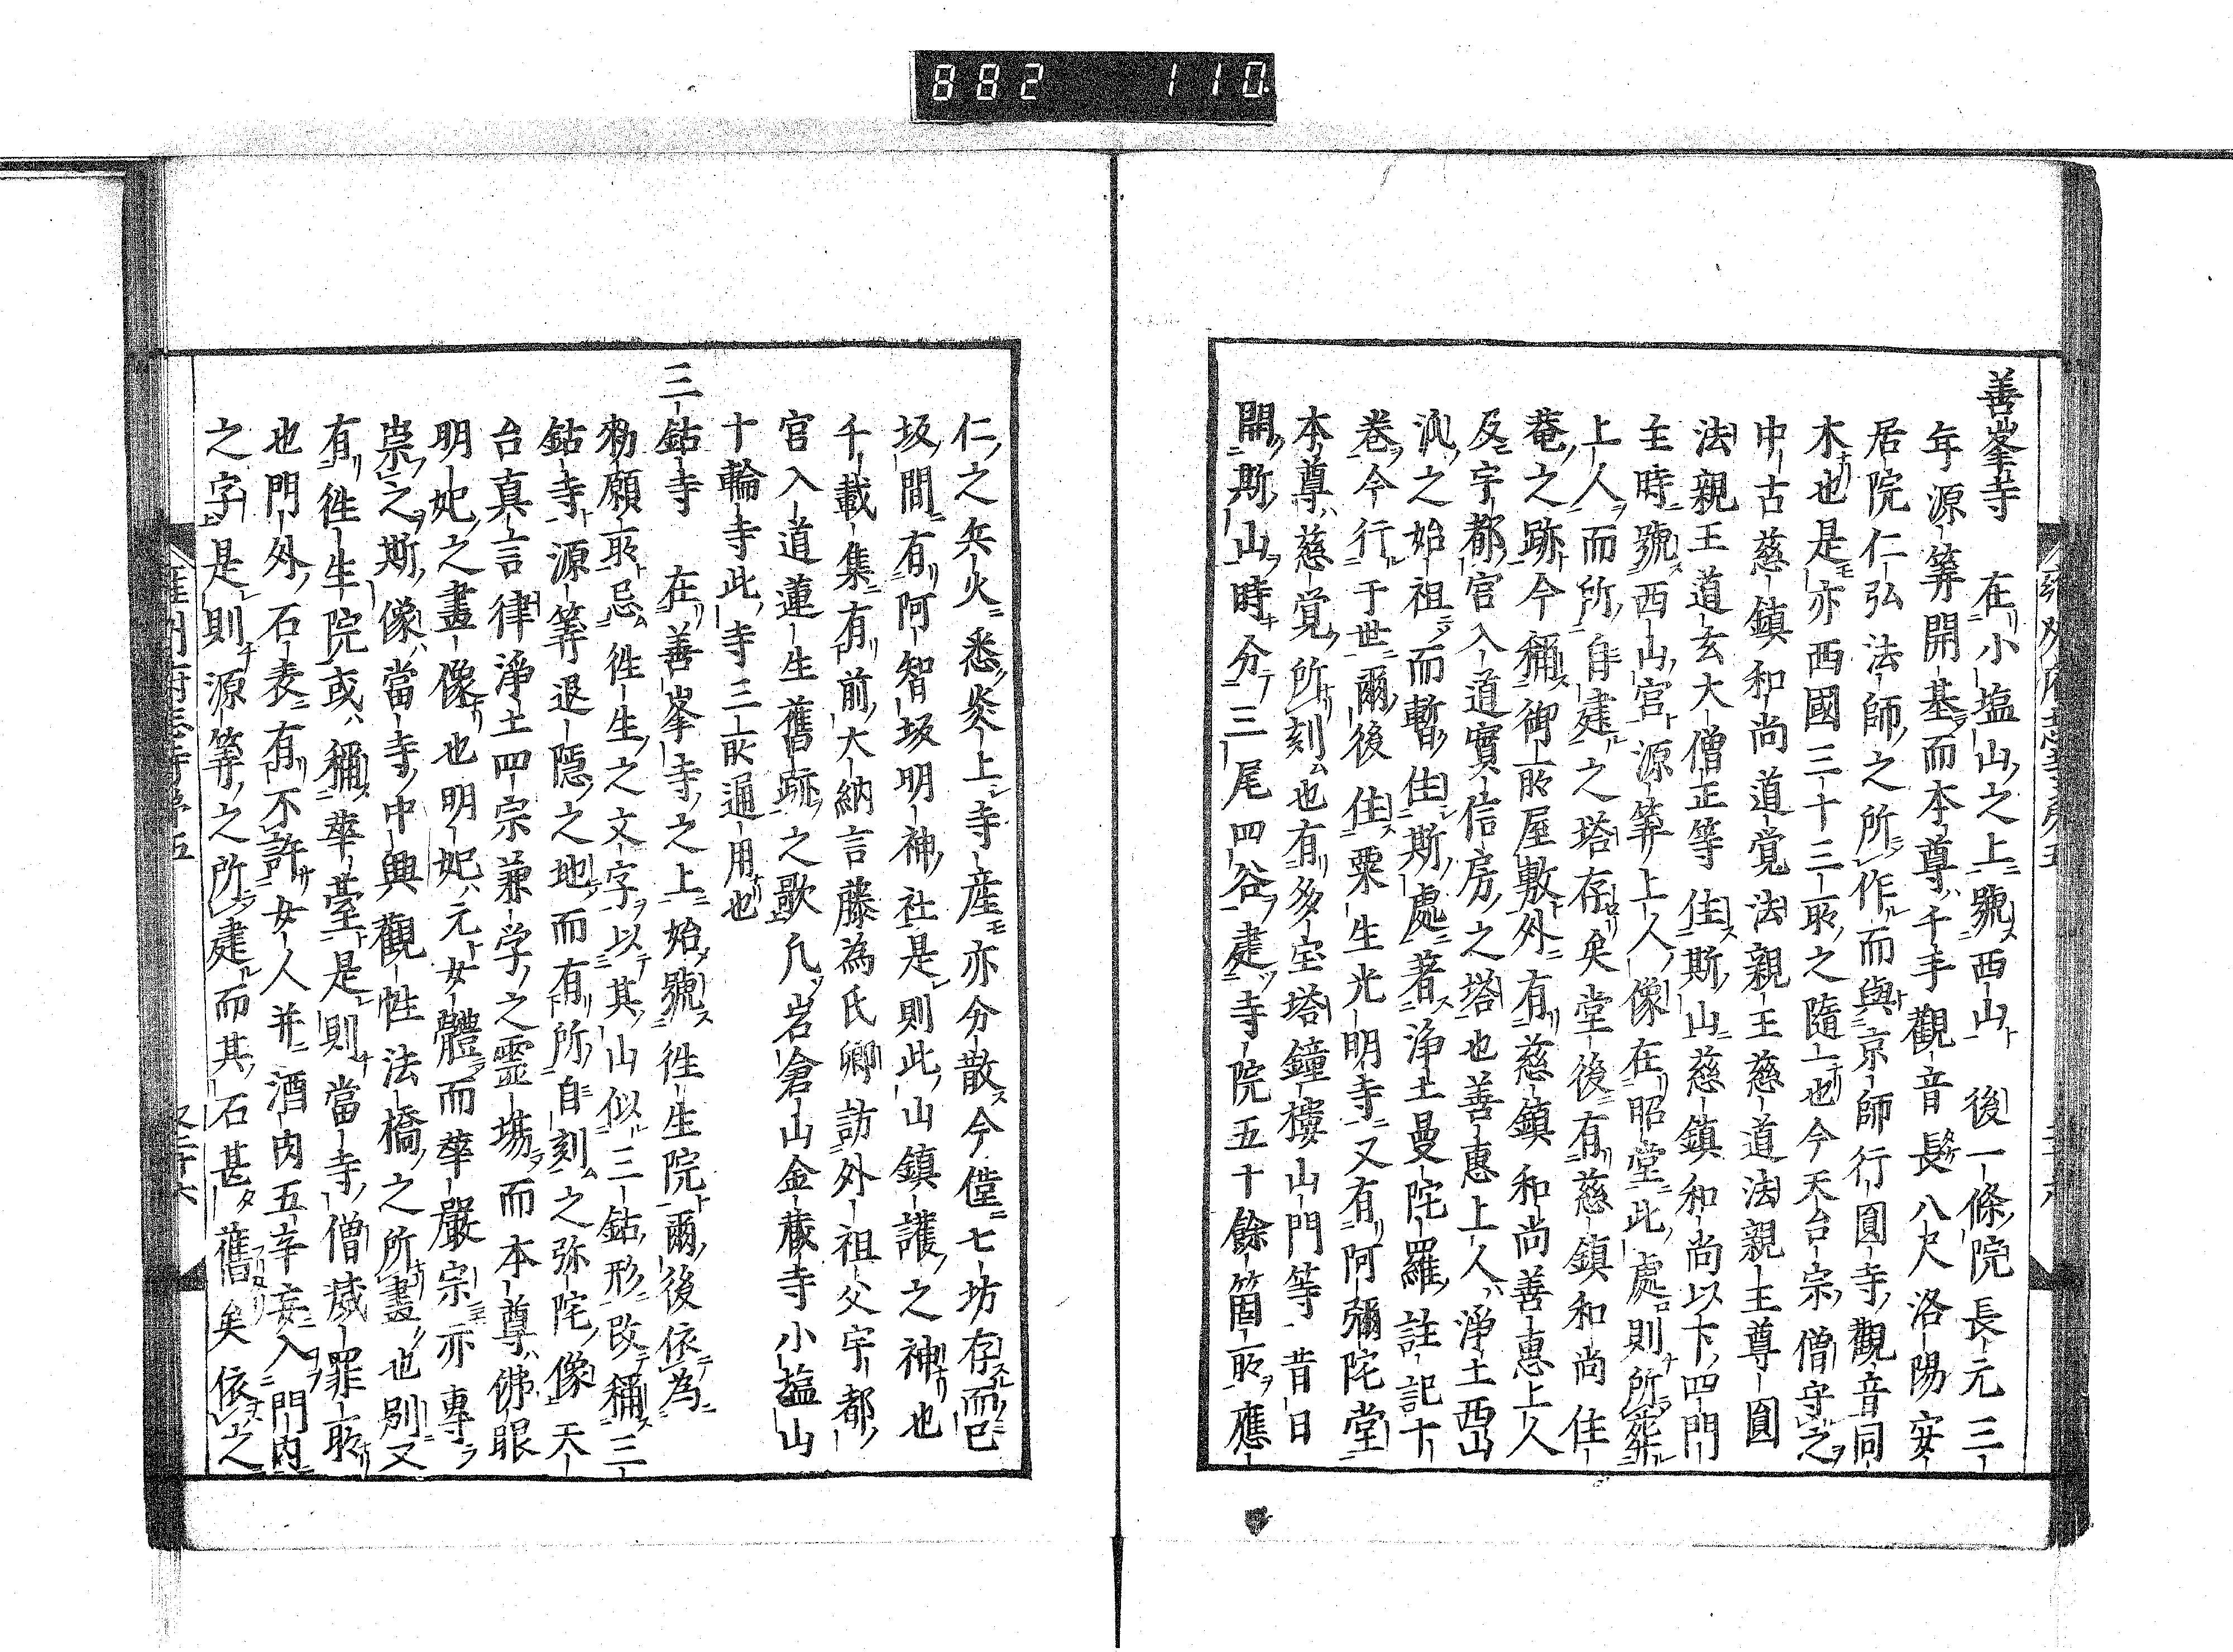 882 110
善峯寺 在小塩山之上號西山 後一條院長元三
年源筭開基而本尊千手觀音長八尺洛陽安
居院仁弘法師之所作而與京師行圓寺觀音同
木也是亦西國三十三所之隨一也今天台宗僧守之
中古慈鎮和尚道覚法親王慈道法親王尊圓
法親王道玄大僧正等住斯山慈鎮和尚以下四門
主時號西山宮源筭上人像在昭堂此處則所葬
上人而所自建之塔存矣堂後有慈鎮和尚住
菴之跡今稱御所屋敷外有慈鎮和尚善惠上人
及宇都宮入道實信房之塔也善惠上人淨土西山
派之始祖而暫住斯處著淨土曼陀羅註記十
卷今行于世爾後住粟生光明寺又有阿彌陀堂
本尊慈覚所刻也有多宝塔鐘樓山門等昔日
開斯山時分三尾四谷建寺院五十餘箇所應
仁之兵火悉炎上寺産亦分散今僅七坊存而已
坂間有阿智坂明神社是則此山鎮護之神也
千載集有前大納言藤為氏卿訪外祖父宇都
宮入道蓮生舊跡之歌凢岩倉山金藏寺小塩山
十輪寺此寺三所通用也
三鈷寺 在善峯寺之上始號徃生院爾後依為
勅願所忌徃生之文字以其山似三鈷形改稱三
鈷寺源筭退隠之地而有所自刻之弥陀像天
台真言律淨土四宗兼学之霊塲而本尊佛眼
明妃之畫像也明妃元女體而華嚴宗亦專
崇之斯像當寺中興觀性法橋之所畫也別又
有徃生院或稱華臺是則當寺僧滅罪所
也門外石表有不許女人并酒肉五辛妄入門内
之字是則源筭之所建而其石甚舊矣依之